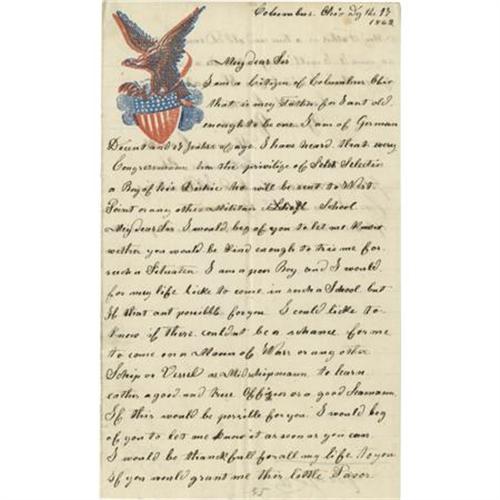 Columbus. Ohio Dg the 23
1862
Mey dear Sir
I am a citizen of Columbus Ohio
that is mey Father for I ant old
enough to be one I am of German
Decent and 17 Jeahre of age. I have heard that every
Congressmann has the privilige of Selects
a Boy of his District who will be sent to West
Point or any other Militair School.
Mey dear Sir I would, beg of you to let me know
wether you would be kind enough to trie me for
such a Situaten. I am a poor Boy and I would
for mey life licke to come in such a School but
If that ant possibble for you I could licke to
know if there couldnt be a schance for me
to come on a Mann of Warr or any other
Schip or Vessel as Midschipmann. to learn
eather a good and true Officer or a good Seamann.
If this would be possible for you I would beg
of you to let me know it as soon as you can.
I would be thanckfull for all my life to you
if you would grant me this little Favor